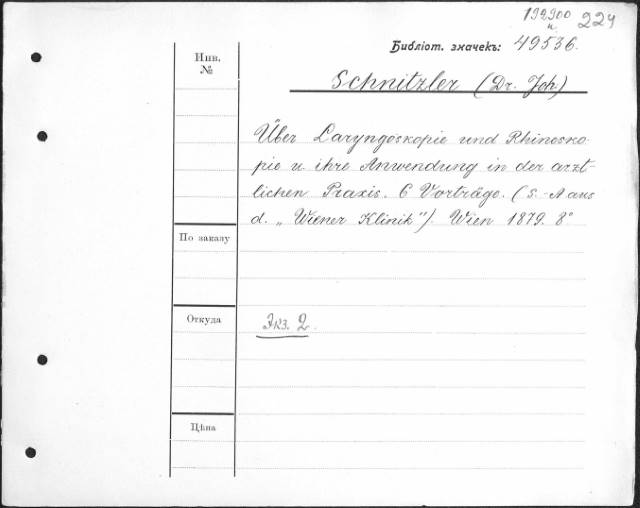 192900
и 224
Библіот. значекъ: 49536.
Инв.
№
Schnitzler (Dr. Joh)
Über Laryngoskopie und Rhinosko-
pie u. ihre Anwendung in der arzt-
lichen Praxis. 6 Vorträge. (S.-A aus
d. „Wiener Klinik"). Wien 1879. 8°
По заказу
Откуда
Экз. 2.
Цѣна